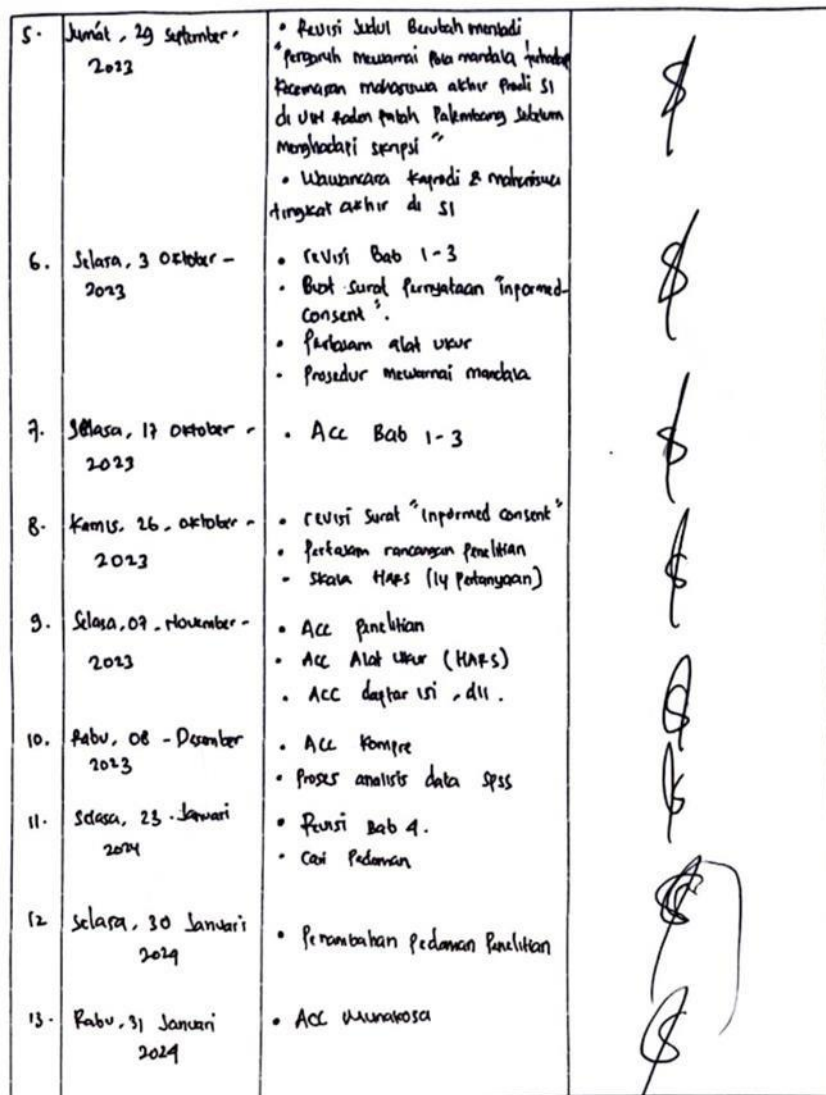 5. Jumát, 29 September -
2023
• Revisi Judul Berubah menjadi
"Pengaruh mewarnai Pola mandala terhadap
Kecemasan mahasiswa akhir Prodi SI
di UIN Raden Patah Palembang Sebelum
Menghadapi skripsi"
• Wawancara Kaprodi & mahasiswa
tingkat akhir di SI
6. Selasa, 3 Oktober -
2023
• revisi Bab 1-3
• Buat surat Pernyataan "informed-
consent".
• Perjelas alat ukur
• Prosedur mewarnai mandala
7. Selasa, 17 Oktober -
2023
• Acc Bab 1-3
8. Kamis, 26. oktober -
2023
• revisi Surat "informed consent"
• rancangan Penelitian
- Skala HARS (14 Pertanyaan)
9. Selasa, 07. November -
2023
• Acc Penelitian
• Acc Alat Ukur (HARS)
• Acc daftar isi, dll.
10. Rabu, 08 - Desember
2023
• Acc Kompre
• Proses analisis data SPSS
11. Selasa, 23. Januari
2024
• Revisi Bab 4.
• Cari Pedoman
12 Selasa, 30 Januari
2024
• Penambahan Pedoman Penelitian
13. Rabu, 31 Januari
2024
• Acc Munakosa